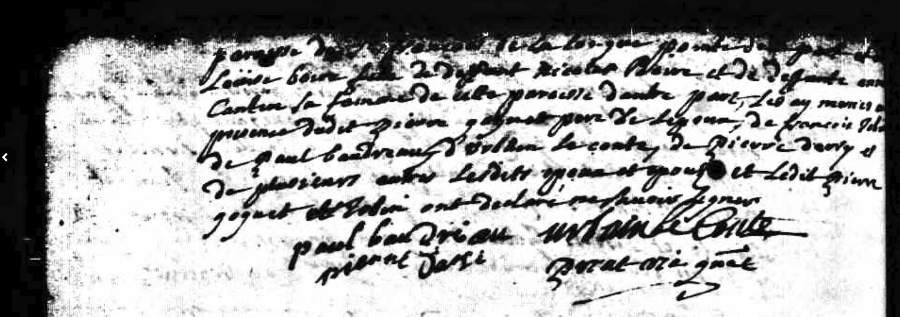 paroisse de St françois de la longue pointe d'une part et
Loüise boire fille de deffunt nicolas Boire et de deffunte
Cantin sa femme de cette paroisse d'autre part, Les ay mariés
presence dudit pierre goguet pere de l'epoux, de françois
de Paul baudreau, d'Urbain Le conte, de Pierre d'arsy et
de plusieurs autres Lesdits epoux et epouse et Ledit pierre
goguet et ont declaré ne scavoir signer
paul baudriau urbain Le Conte
pierre Darsi